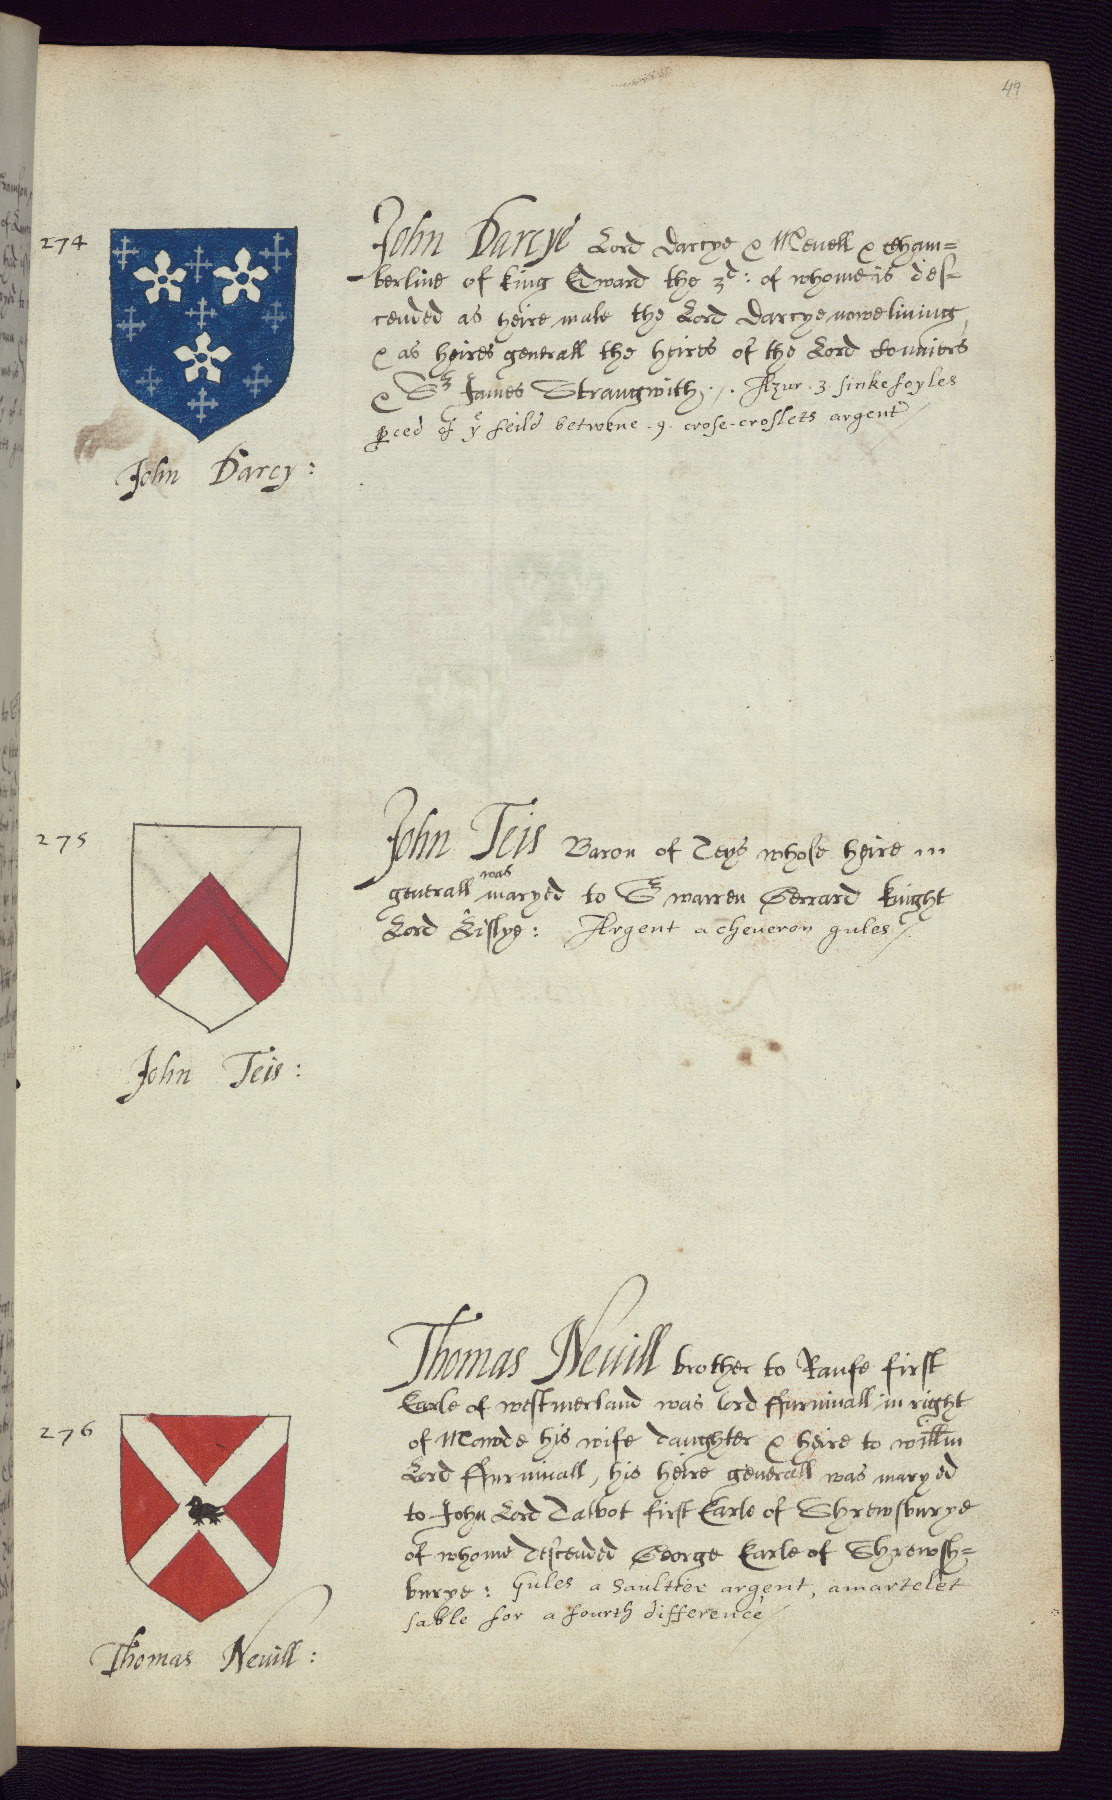 49
274
John Darcye Lord Darcye & Mevell & Cham=
berline of king Edward the 3d: of whome is des-
cended as heire male the Lord Darcye nowe living,
& as heires generall the heires of the Lord Conniers
& Sr James Strangwith; /. Azur . 3 . sinkefoyles
pced of ye feild betwene . 9 . crose-croslets argent /
John Darcy :
275
John Teis Baron of Teys whose heire in
generall was maryed to Sr warren Gerrard knight
Lord Lislye : Argent a cheueron gules /
John Teis :
276
Thomas Neuill brother to Raufe first
Earle of westmerland was lord ffurniuall in right
of Mawde his wife daughter & heire to willm
Lord ffurniuall, his heire generall was maryed
to John Lord Talbot first Earle of Shrewsburye
of whome descended George Earle of Shrewsh=
burye : Gules a saultter argent, a martelet
sable for a fourth difference /
Thomas Neuill :